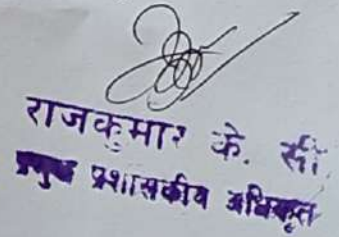 राजकुमार के. सी.
प्रमुख प्रशासकीय अधिकृत